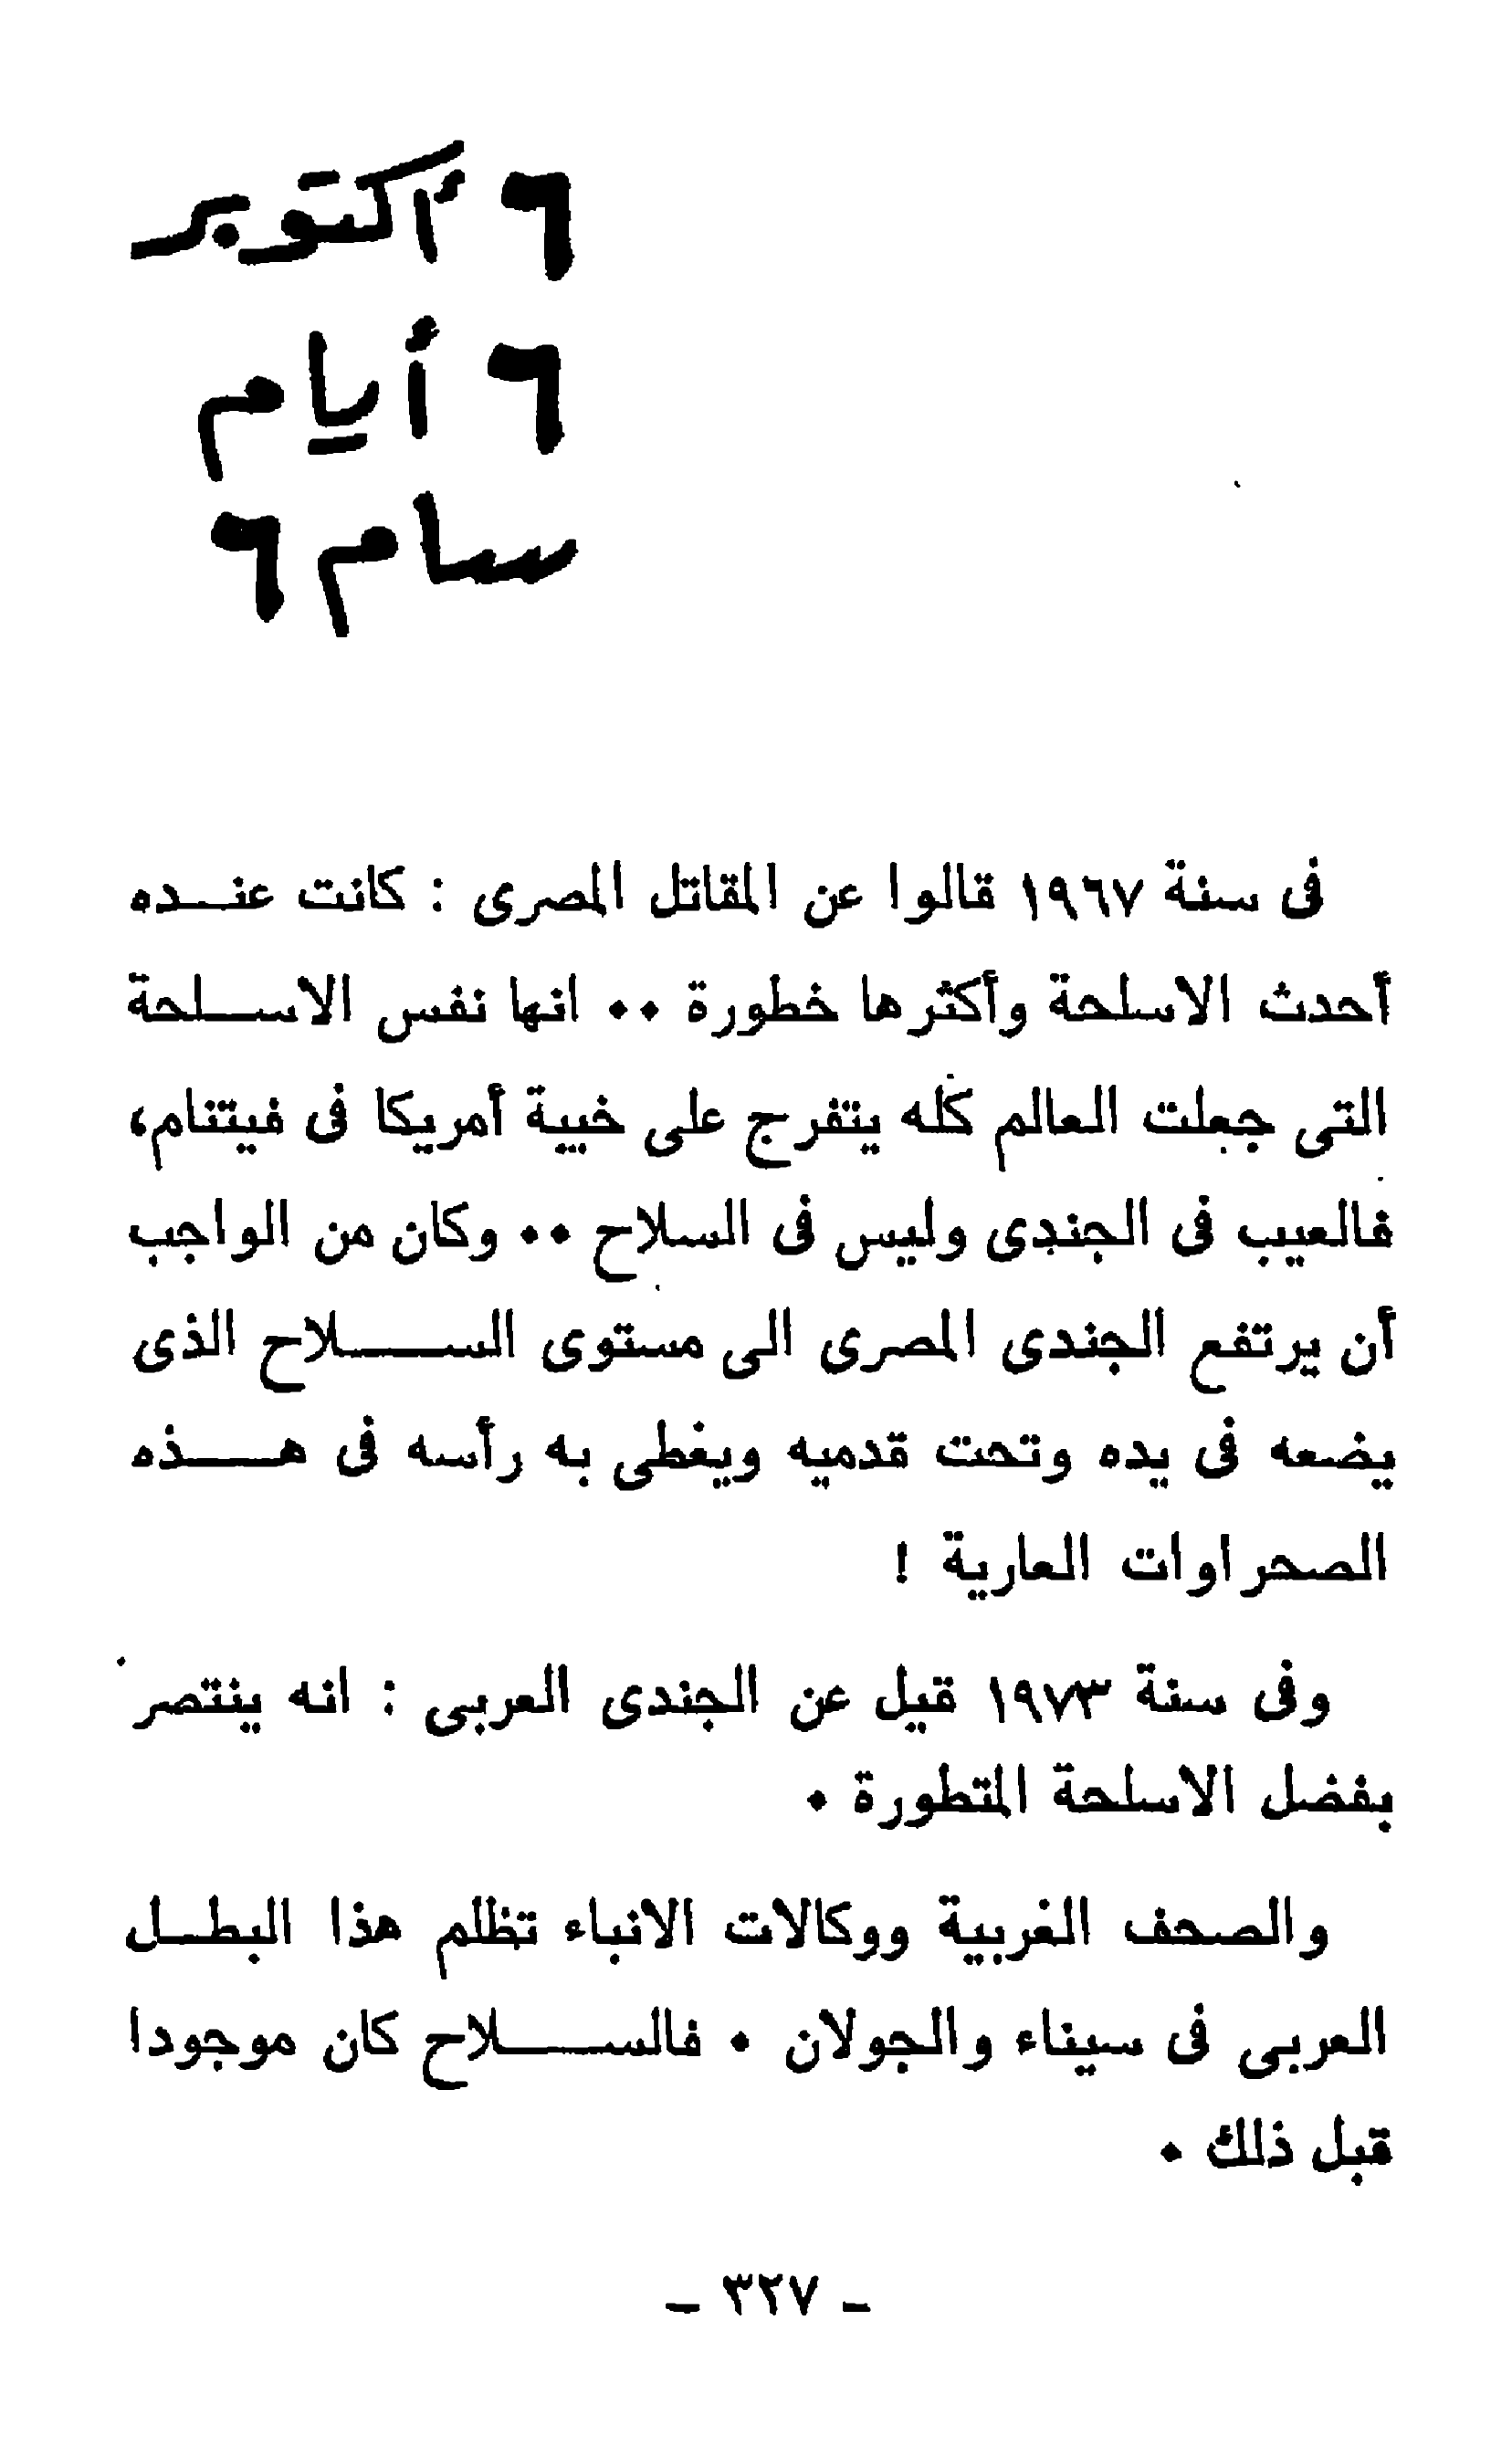 ٦ أكتوبر
٦ أيام
سام ٦
فى سنة ١٩٦٧ قالوا عن المقاتل المصرى : كانت عنده
أحدث الاسلحة وأكثرها خطورة ٠٠ انها نفس الاسلحة
التى جعلت العالم كله يتفرج على خيبة أمريكا فى فيتنام،
فالعيب فى الجندى وليس فى السلاح ٠٠ وكان من الواجب
أن يرتفع الجندى المصرى الى مستوى السلاح الذى
يضعه فى يده وتحت قدميه ويغطى به رأسه فى هذه
الصحراوات العارية !
وفى سنة ١٩٧٣ قيل عن الجندى العربى : انه ينتصر
بفضل الاسلحة المتطورة ٠
والصحف الغربية ووكالات الانباء تظلم هذا البطل
العربى فى سيناء والجولان ٠ فالسلاح كان موجودا
قبل ذلك ٠
– ٣٢٧ –